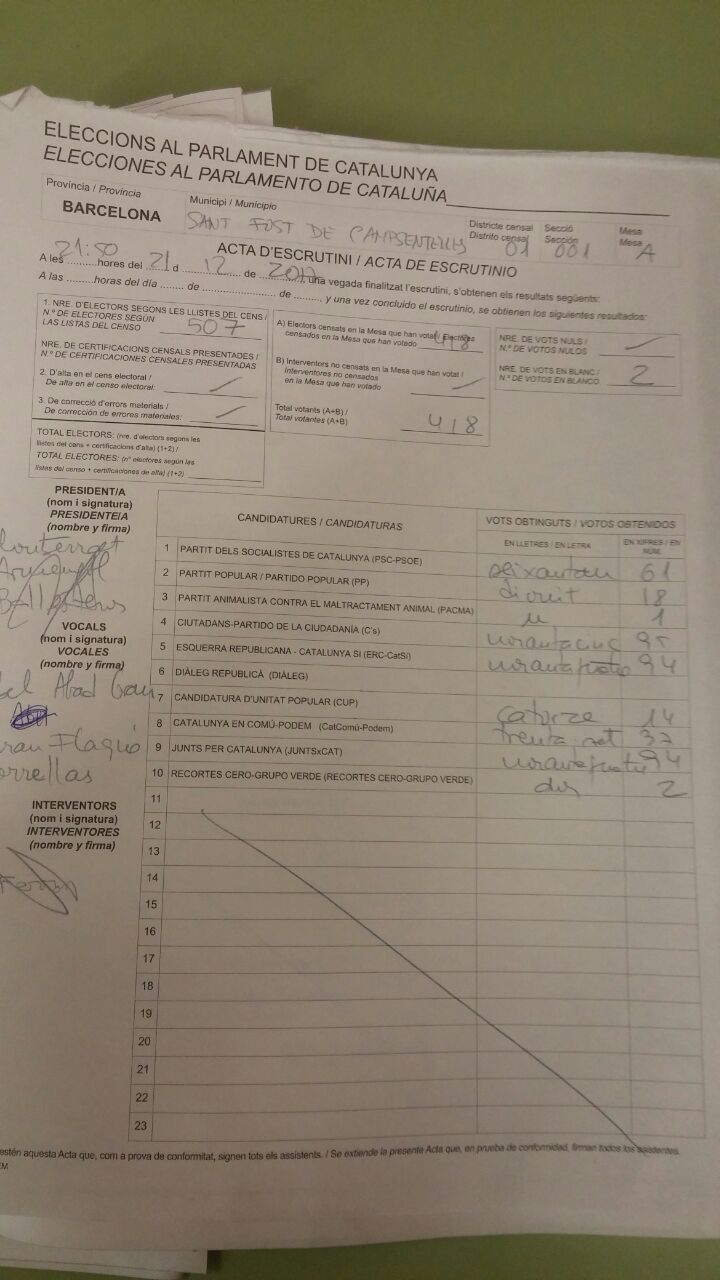 ELECCIONS AL PARLAMENT DE CATALUNYA
ELECCIONES AL PARLAMENTO DE CATALUÑA
Província / Provincia
BARCELONA
Municipi / Municipio
SANT FOST DE CAMPSENTELLES
Districte censal
Distrito censal
01
Secció
Sección
001
Mesa
Mesa
A
ACTA D'ESCRUTINI / ACTA DE ESCRUTINIO
A les 21:50 hores del 21 d 12 de 2017, una vegada finalitzat l'escrutini, s'obtenen els resultats següents:
A las ......... horas del día ....... de ......................... de ......... y una vez concluido el escrutinio, se obtienen los siguientes resultados:
1. NRE. D'ELECTORS SEGONS LES LLISTES DEL CENS /
N.º DE ELECTORES SEGÚN
LAS LISTAS DEL CENSO
507
NRE. DE CERTIFICACIONS CENSALS PRESENTADES /
N.º DE CERTIFICACIONES CENSALES PRESENTADAS
2. D'alta en el cens electoral /
De alta en el censo electoral:
3. De correcció d'errors materials /
De corrección de errores materiales:
TOTAL ELECTORS: (nre. d'electors segons les
llistes del cens + certificacions d'alta) (1+2) /
TOTAL ELECTORES: (nº electores según las
listas del censo + certificaciones de alta) (1+2)
A) Electors censats en la Mesa que han votat / Electores
censados en la Mesa que han votado
418
B) Interventors no censats en la Mesa que han votat /
Interventores no censados
en la Mesa que han votado
Total votants (A+B) /
Total votantes (A+B)
418
NRE. DE VOTS NULS /
N.º DE VOTOS NULOS
NRE. DE VOTS EN BLANC /
N.º DE VOTOS EN BLANCO
2
PRESIDENT/A
(nom i signatura)
PRESIDENTE/A
(nombre y firma)
VOCALS
(nom i signatura)
VOCALES
(nombre y firma)
INTERVENTORS
(nom i signatura)
INTERVENTORES
(nombre y firma)
CANDIDATURES / CANDIDATURAS
VOTS OBTINGUTS / VOTOS OBTENIDOS
EN LLETRES / EN LETRA
EN XIFRES / EN NÚM.
1 PARTIT DELS SOCIALISTES DE CATALUNYA (PSC-PSOE) 61
2 PARTIT POPULAR / PARTIDO POPULAR (PP) divuit 18
3 PARTIT ANIMALISTA CONTRA EL MALTRACTAMENT ANIMAL (PACMA) u 1
4 CIUTADANS-PARTIDO DE LA CIUDADANÍA (C's) norantacinc 95
5 ESQUERRA REPUBLICANA - CATALUNYA SI (ERC-CatSí) norantaquatre 94
6 DIÀLEG REPUBLICÀ (DIÀLEG)
7 CANDIDATURA D'UNITAT POPULAR (CUP) catorze 14
8 CATALUNYA EN COMÚ-PODEM (CatComú-Podem) trenta set 37
9 JUNTS PER CATALUNYA (JUNTSxCAT) norantaquatre 94
10 RECORTES CERO-GRUPO VERDE (RECORTES CERO-GRUPO VERDE) dos 2
11
12
13
14
15
16
17
18
19
20
21
22
23
estén aquesta Acta que, com a prova de conformitat, signen tots els assistents. / Se extiende la presente Acta que, en prueba de conformidad, firman todos los asistentes.